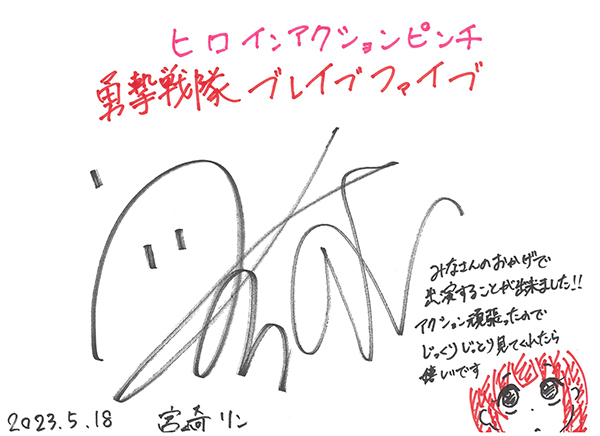 ヒロインアクションピンチ
勇撃戦隊 ブレイブファイブ
みなさんのおかげで
出演することが出来ました!!
アクション頑張ったので
じっくりじっとり見てくれたら
嬉しいです
2023.5.18 宮崎リン